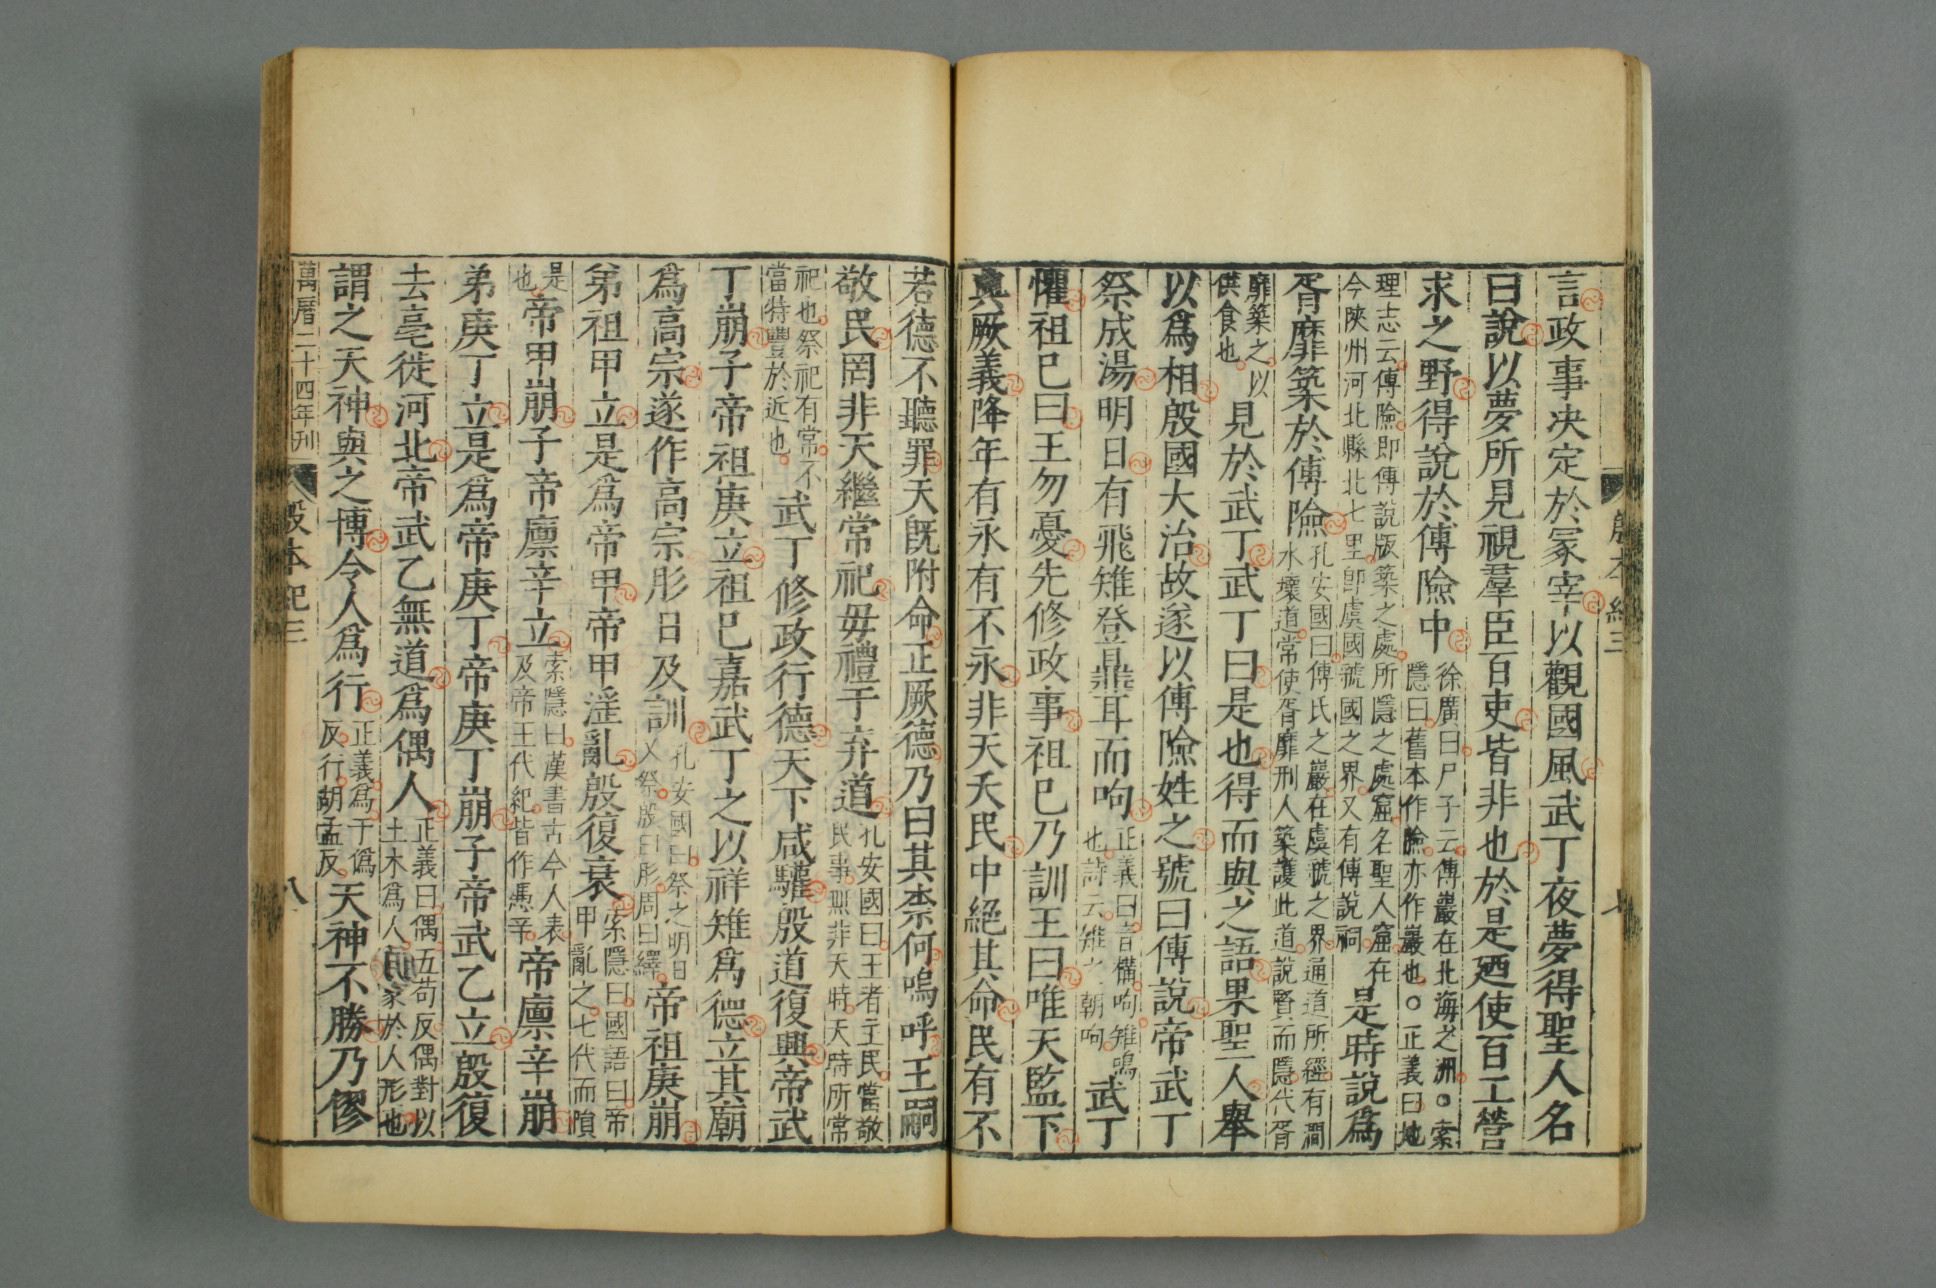 殷本紀三
七
言政事決定於冢宰以觀國風武丁夜夢得聖人名
曰說以夢所見視羣臣百吏皆非也於是廼使百工營
求之野得說於傅險中
徐廣曰尸子云傅巖在北海之洲○索
隱曰舊本作險亦作巖也○正義曰地
理志云傅險即傅說版築之處所隱之處窟名聖人窟在
今陝州河北縣北七里即虞國虢國之界又有傅說祠
是時說爲
胥靡築於傅險
孔安國曰傅氏之巖在虞虢之界通道所經有澗
水壞道常使胥靡刑人築護此道說賢而隱代胥
靡築之以
供食也
見於武丁武丁曰是也得而與之語果聖人舉
以爲相殷國大治故遂以傅險姓之號曰傅說帝武丁
祭成湯明日有飛雉登鼎耳而呴
正義曰音構呴雉鳴
也詩云雉之朝呴
武丁
懼祖已曰王勿憂先修政事祖已乃訓王曰唯天監下
典厥義降年有永有不永非天夭民中絕其命民有不
若德不聽罪天旣附命正厥德乃曰其柰何嗚呼王嗣
敬民罔非天繼常祀毋禮于弃道
孔安國曰王者主民當敬
民事無非天時天時所常
祀也祭祀有常不
當特豐於近也
武丁修政行德天下咸驩殷道復興帝武
丁崩子帝祖庚立祖已嘉武丁之以祥雉爲德立其廟
爲高宗遂作高宗肜日及訓
孔安國曰祭之明日
又祭殷曰肜周曰繹
帝祖庚崩
弟祖甲立是爲帝甲帝甲淫亂殷復衰
索隱曰國語曰帝
甲亂之七代而隕
是
也
帝甲崩子帝廩辛立
索隱曰漢書古今人表
及帝王代紀皆作馮辛
帝廩辛崩
弟庚丁立是爲帝庚丁帝庚丁崩子帝武乙立殷復
去亳徙河北帝武乙無道爲偶人
正義曰偶五苟反偶對以
土木爲人
家於人形也
謂之天神與之博令人爲行
正義爲于僞
反行胡孟反
天神不勝乃僇
萬曆二十四年刊
殷本紀三
八